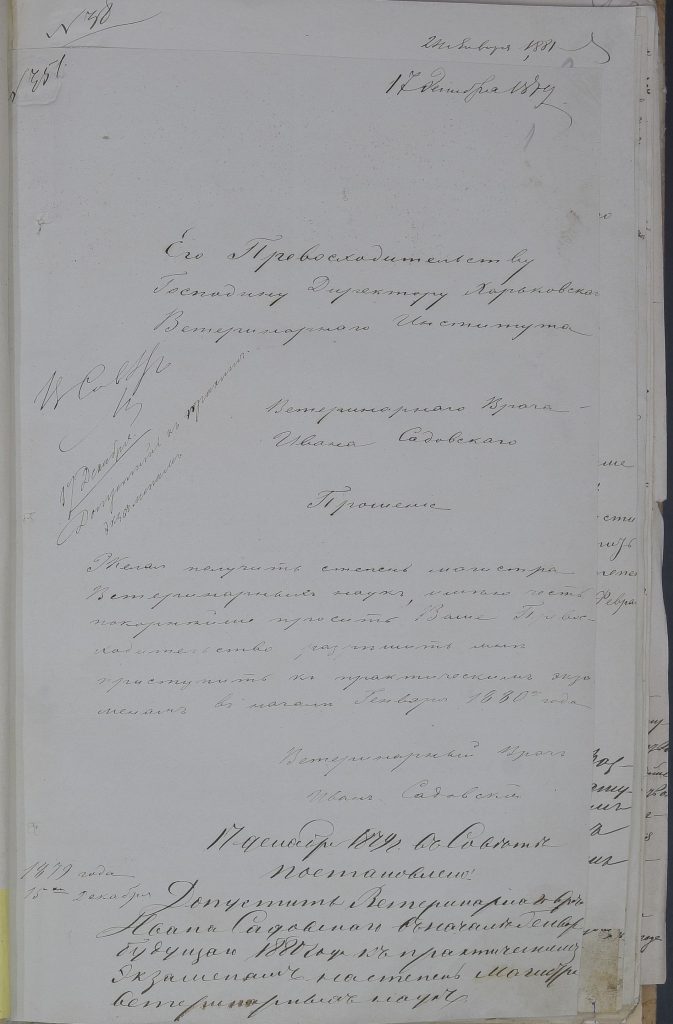 N 38
2 Января 1881
N 351
17 Декабря 1879.
Его Превосходительству
Господину Директору Харьковскаго
Ветеринарнаго Института
Ветеринарнаго Врача
Ивана Садовскаго
Прошение
В Совѣтъ
17 Декабря
Допустить къ
экзаменамъ
Желая получить степень магистра
Ветеринарныхъ наукъ, имѣю честь
покорнѣйше просить Ваше Превос-
ходительство разрѣшить мнѣ
приступить къ практическимъ экза
менамъ въ началѣ Генваря 1880го года
Ветеринарный Врачъ
Иванъ Садовскій
1879 года
15го Декабря
17 декабря 1879г. въ Совѣтѣ
постановлено:
Допустить Ветеринарнаго врача
Ивана Садовскаго въ началѣ Генваря
будущаго 1880 года къ практическимъ
экзаменамъ на степень Магистра
ветеринарныхъ наукъ